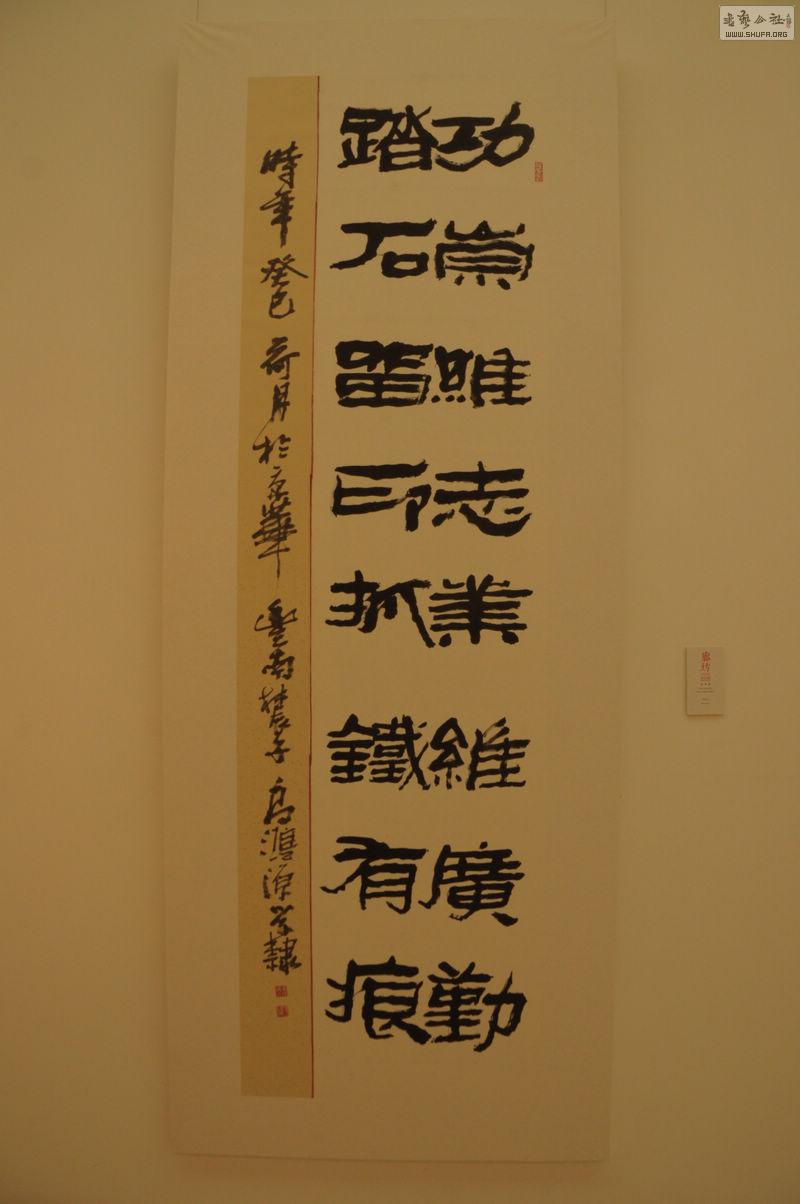 書藝公社
WWW.SHUFA.ORG
功崇雖志業維廣勤
踏石留印抓鐵有痕
時年癸巳荷月於京華南子高鴻源學隸